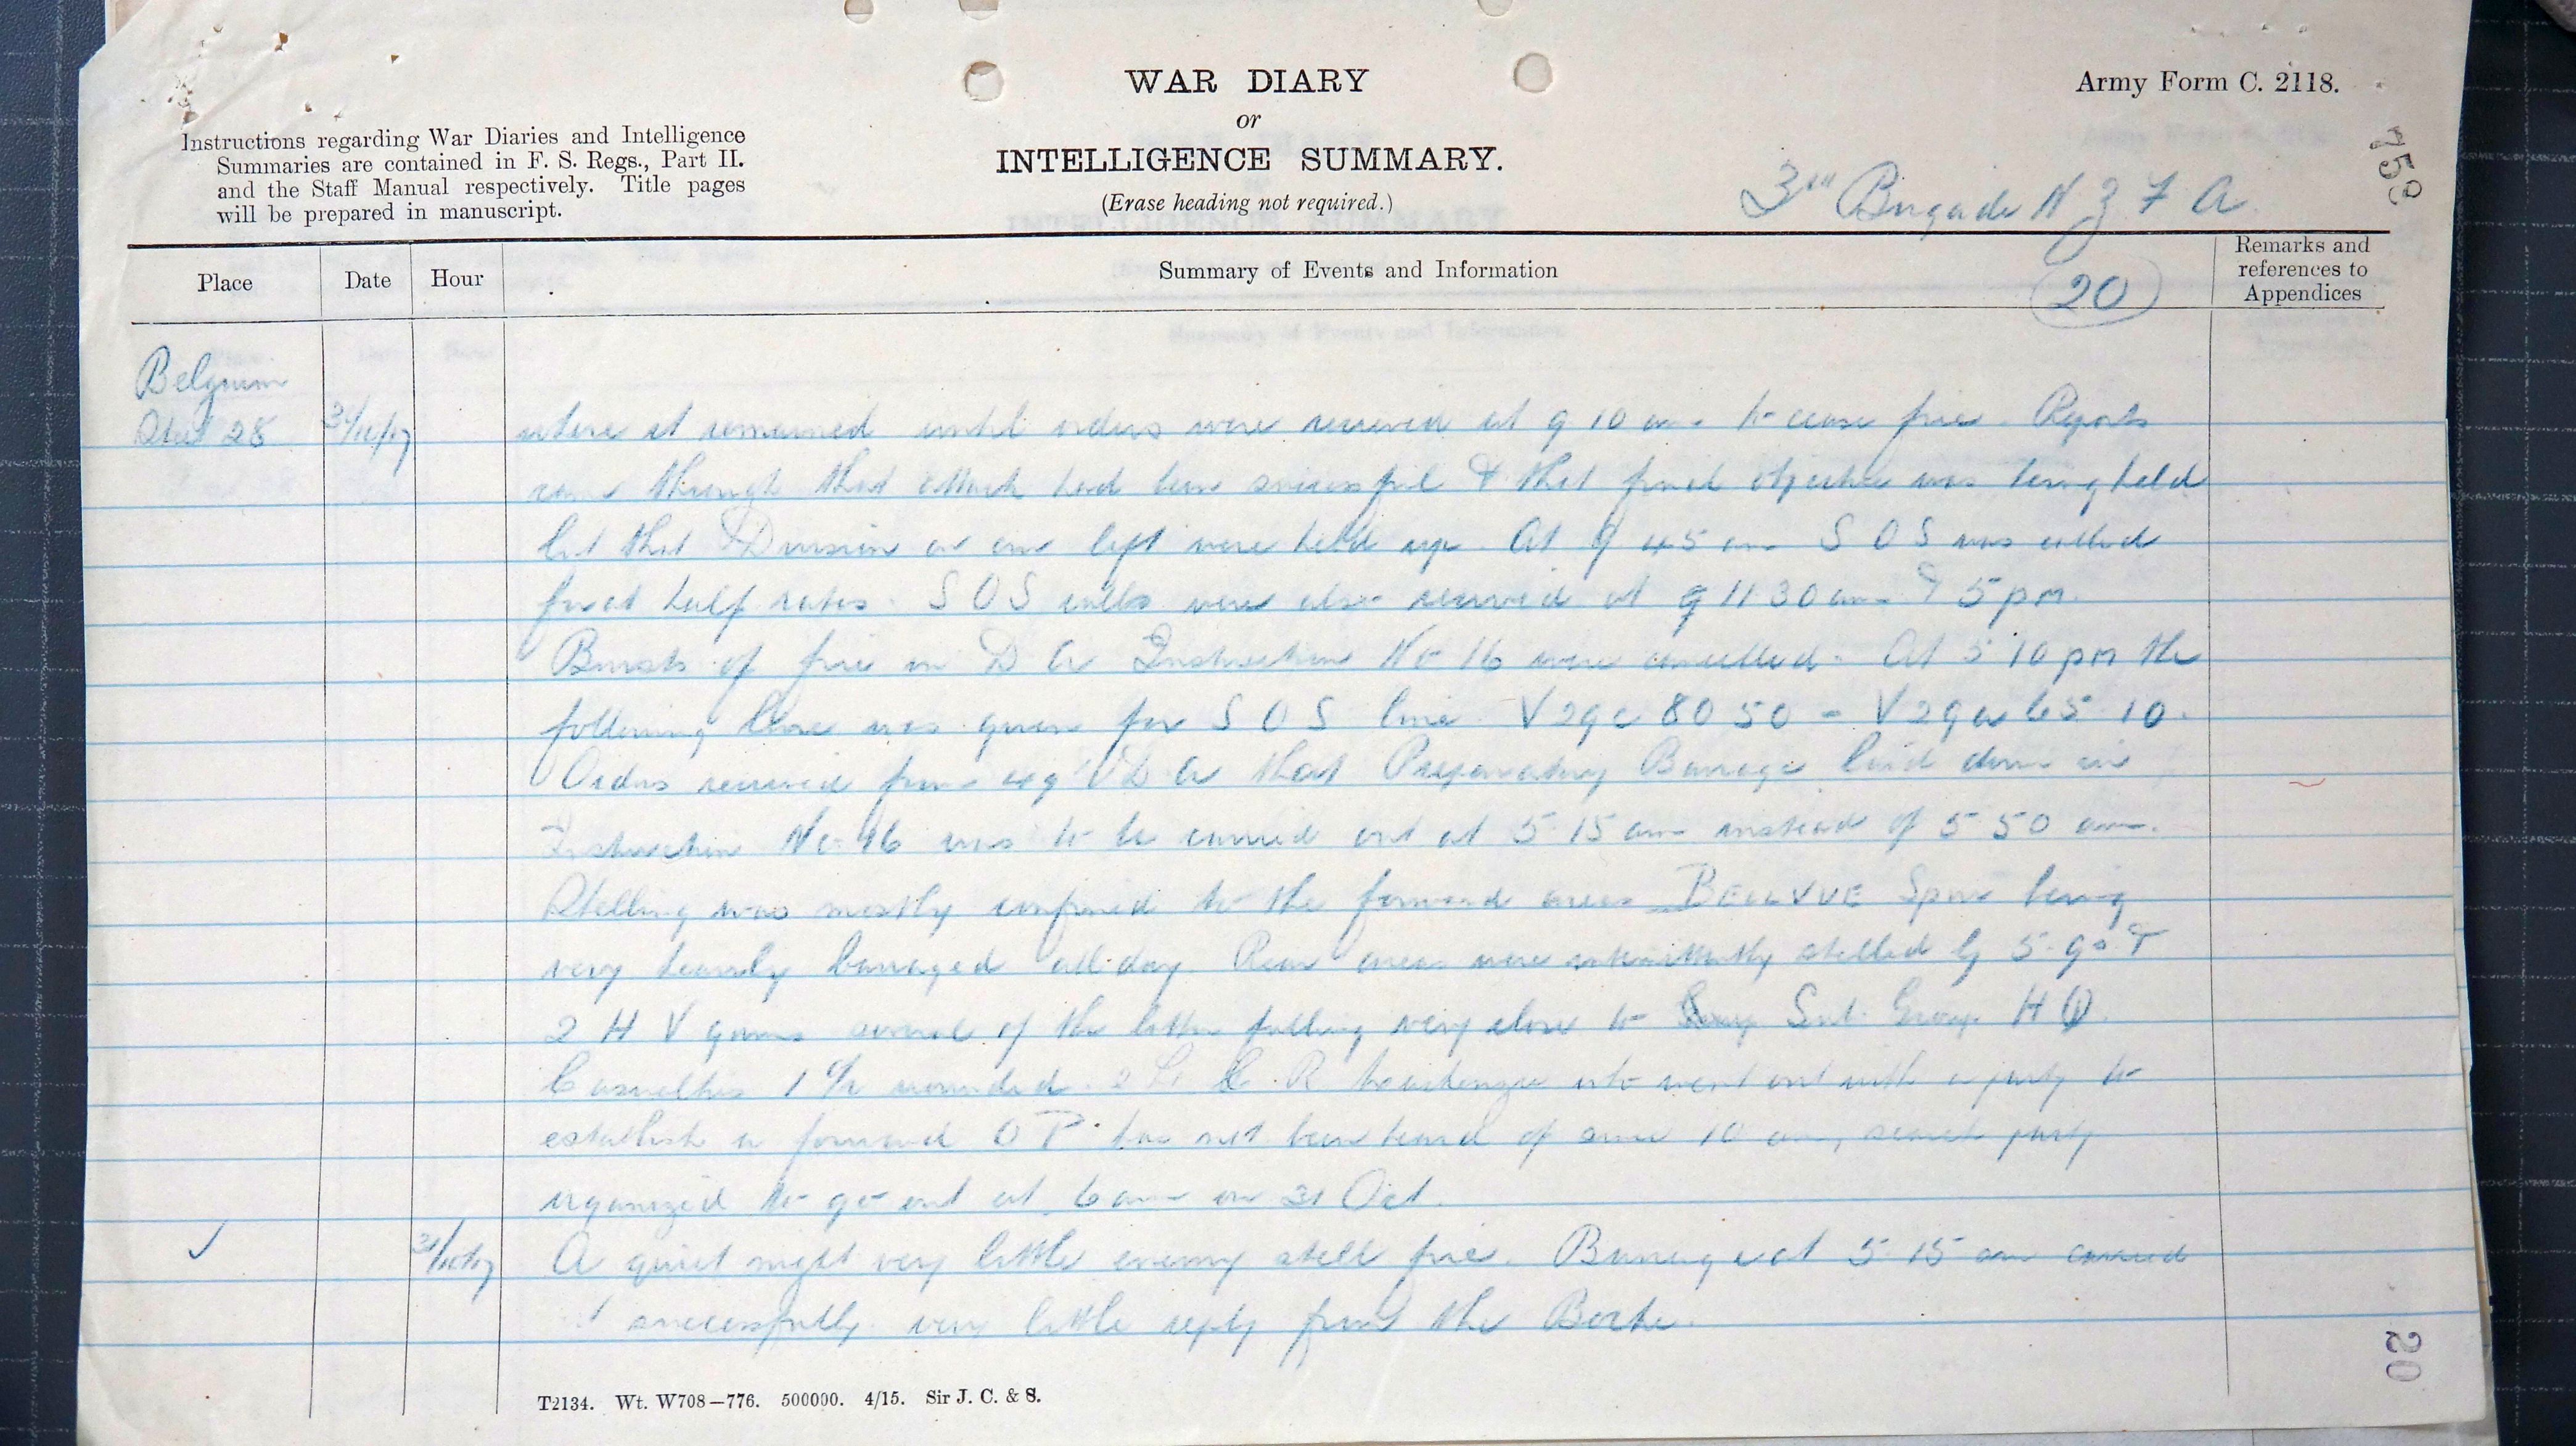 WAR DIARY
or
INTELLIGENCE SUMMARY.
(Erase heading not required.)
Army Form C. 2118.
Instructions regarding War Diaries and Intelligence
Summaries are contained in F. S. Regs., Part II.
and the Staff Manual respectively. Title pages
will be prepared in manuscript.
3rd Brigade N Z F A
758
Place
Date
Hour
Summary of Events and Information
20
Remarks and
references to
Appendices
Belgium
Sheet 28
where it remained until orders were received at 9 10 am to cease fire. Reports
came through that attack had been successful & that final objective was being held
but that Division on our left were held up. At 9 45 am S O S was called
fired half rates. S O S calls were also received at 11 30 am & 5 pm.
Bursts of fire in D A Instruction No 16 were cancelled. At 5 10 pm the
following line was given for S O S line V 29 c 80 50 - V 29 a 65 10.
Orders received from 49 D A that Preparatory Barrage laid down in
Instruction No 16 was to be carried out at 5 15 am instead of 5 50 am.
Shelling was mostly confined to the forward areas BELLVUE Spur being
very heavily barraged all day. Rear areas were intermittently shelled by 5.9s &
2 H V guns several of the latter falling very close to Sub Group H Q.
Casualties 1 O/R wounded. 2 Lt R Mackenzie who went out with a party to
establish a forward O P has not been heard of since 10 am, search party
organized to go out at 6 am on 31 Oct.
31/10/17 A quiet night very little enemy shell fire. Barrage at 5 15 am carried
successfully very little reply from the Boche.
20
T2134. Wt. W708—776. 500000. 4/15. Sir J. C. & S.